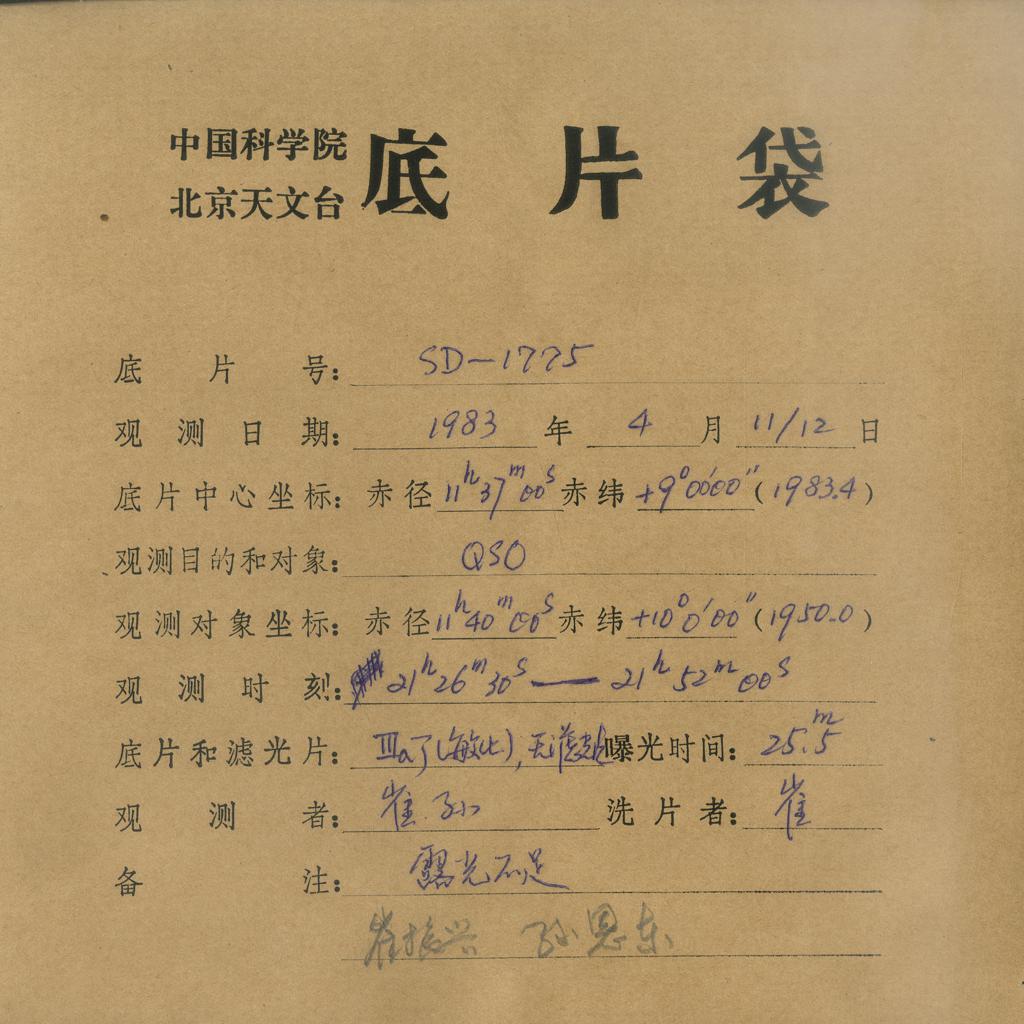 中国科学院
北京天文台
底片袋
底片号: SD-1775
观测日期: 1983 年 4 月 11/12 日
底片中心坐标: 赤径 11h 37m 00s 赤纬 +9°00′00″ (1983.4)
观测目的和对象: QSO
观测对象坐标: 赤径 11h 40m 00s 赤纬 +10°0′00″ (1950.0)
观测时刻: 21h 26m 30s — 21h 52m 00s
底片和滤光片: IIIaJ(敏化), 无滤 曝光时间: 25.5m
观测者: 崔 孙 洗片者: 崔
备注: 露光不足
崔振兴 孙恩东